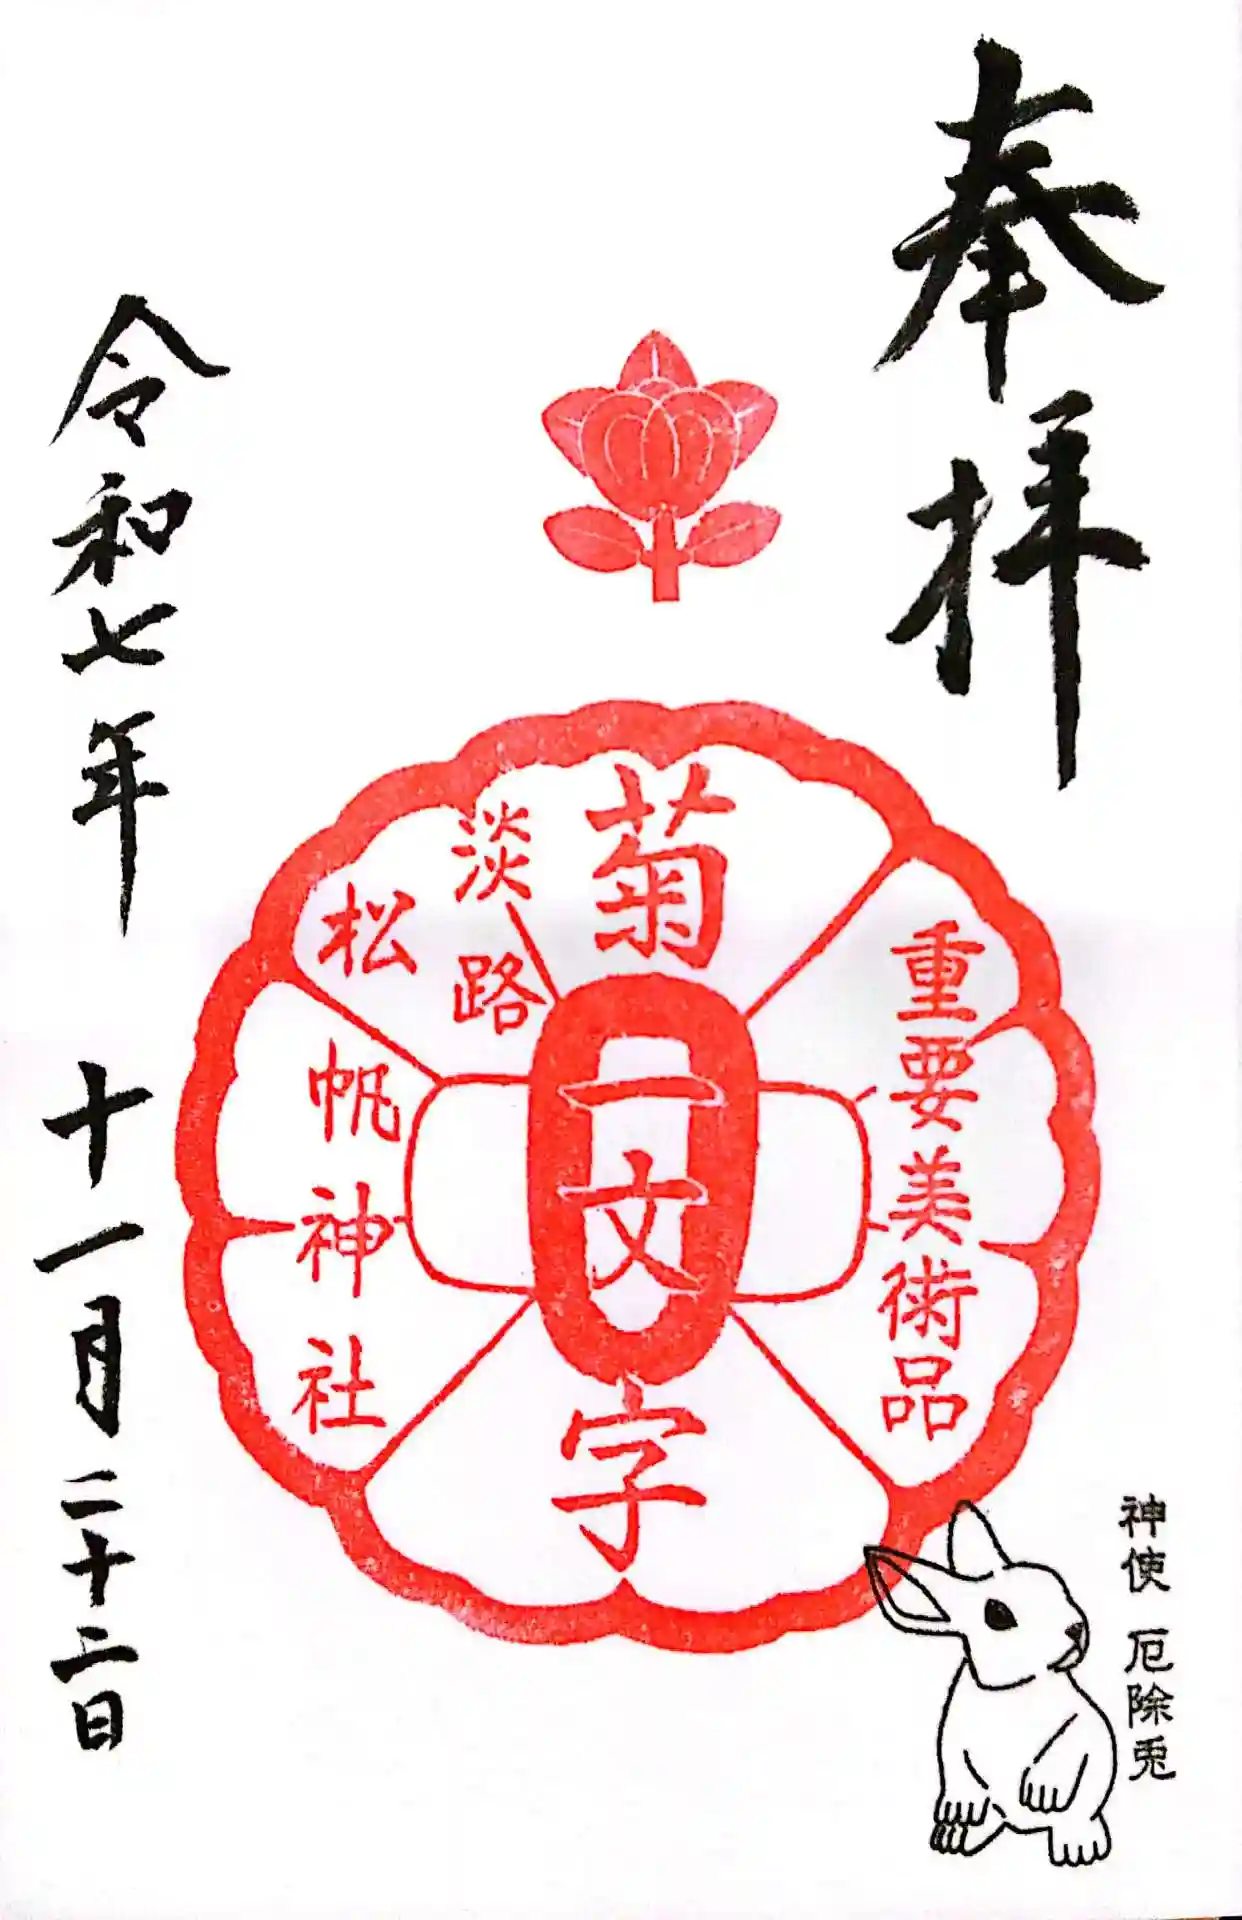 奉拝
重要美術品
菊一文字
淡路
松帆神社
令和七年 十一月二十二日
神使 厄除兎